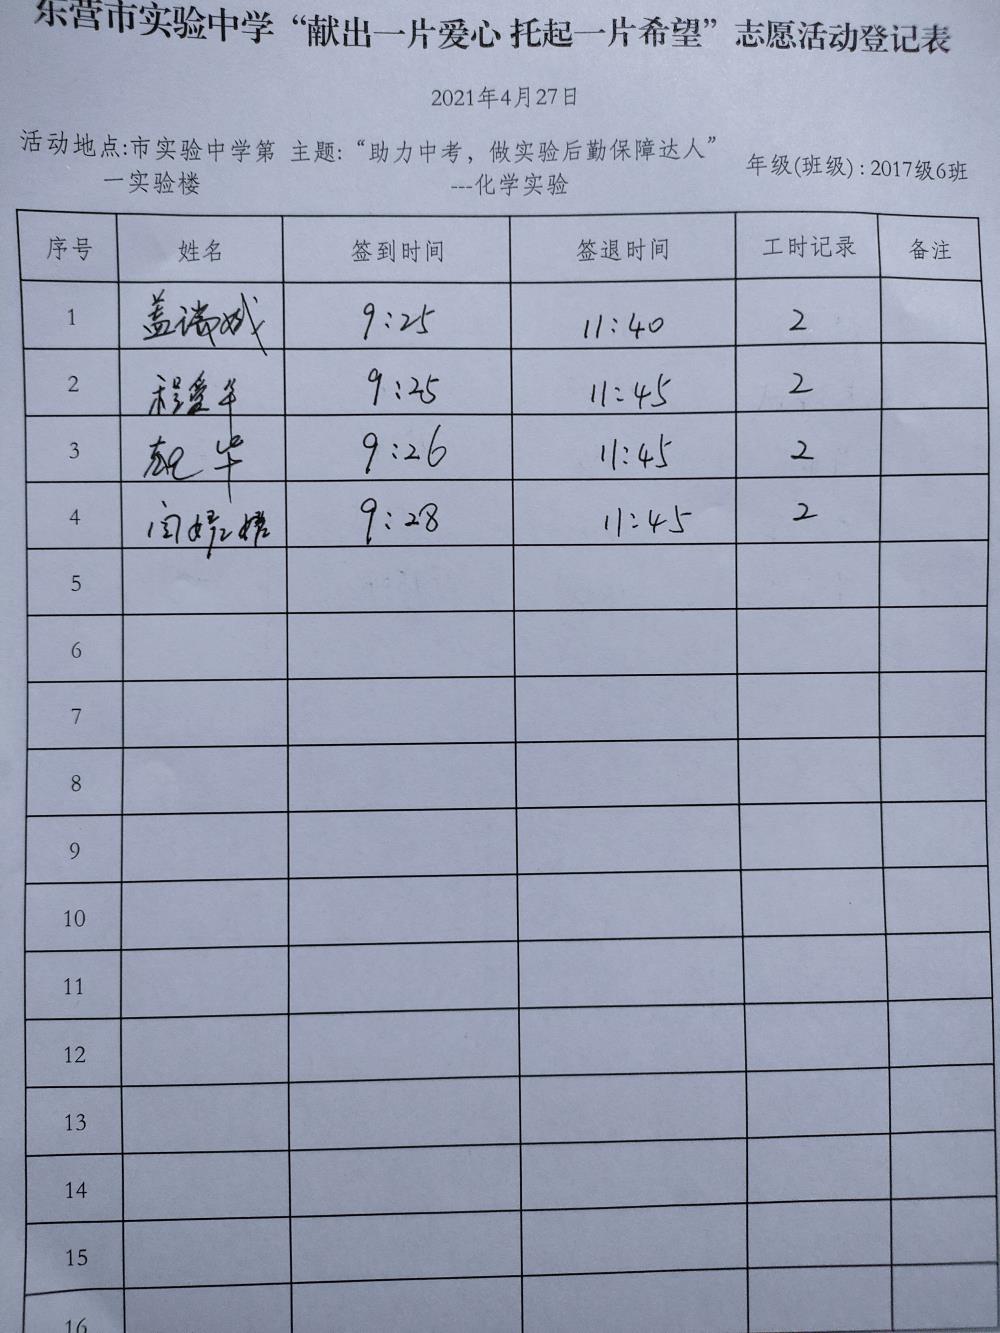 东营市实验中学“献出一片爱心 托起一片希望”志愿活动登记表
2021年4月27日
活动地点:市实验中学第 主题:“助力中考，做实验后勤保障达人” 年级(班级):2017级6班
一实验楼 ---化学实验
序号 姓名 签到时间 签退时间 工时记录 备注
1 盖 9:25 11:40 2
2 程爱华 9:25 11:45 2
3 9:26 11:45 2
4 闫 9:28 11:45 2
5
6
7
8
9
10
11
12
13
14
15
16